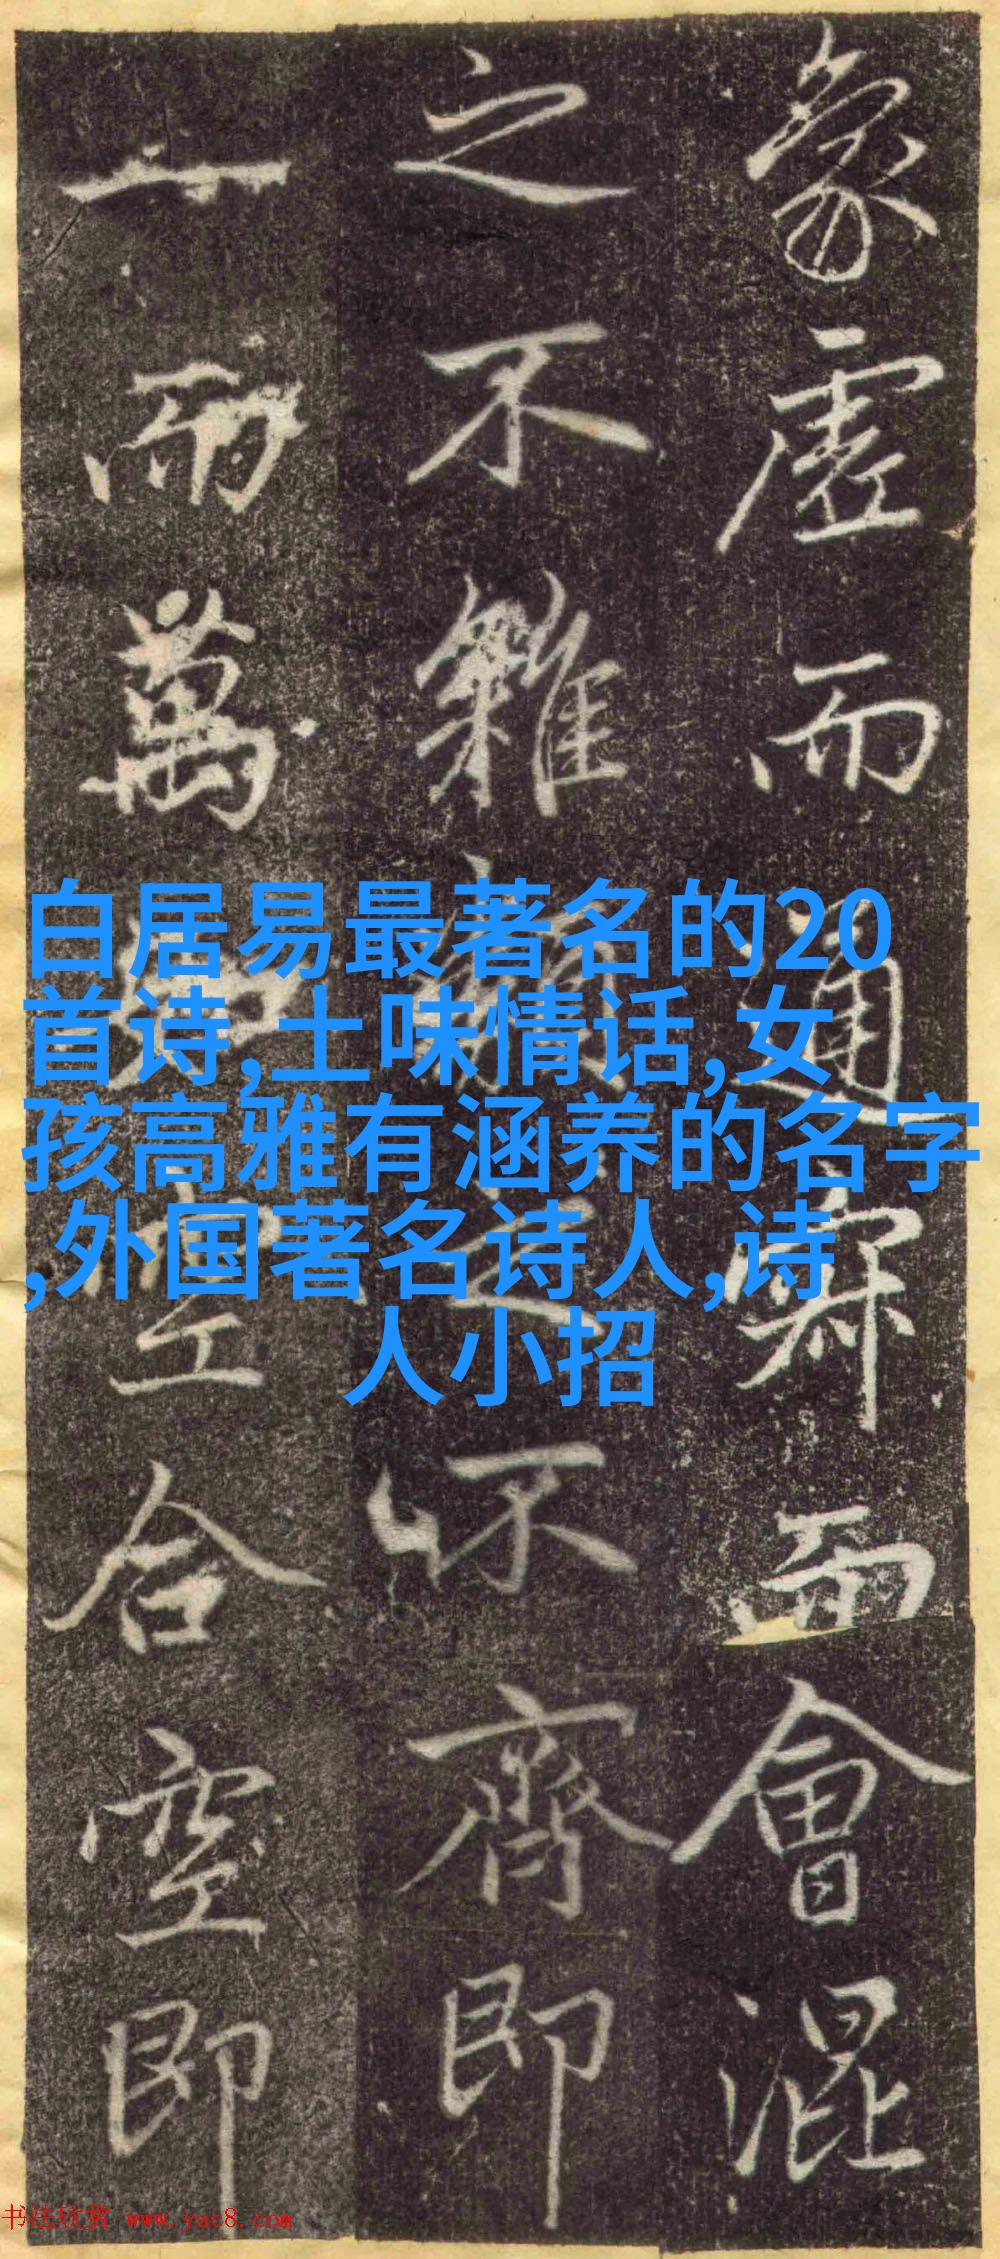 象虛而通寂而會混
之不雜之不齊即
一而萬空合空即
白居易最著名的20
首诗,土味情话,女
孩高雅有涵养的名字
,外国著名诗人,诗
人小招
书法欣赏 www.yac8.com